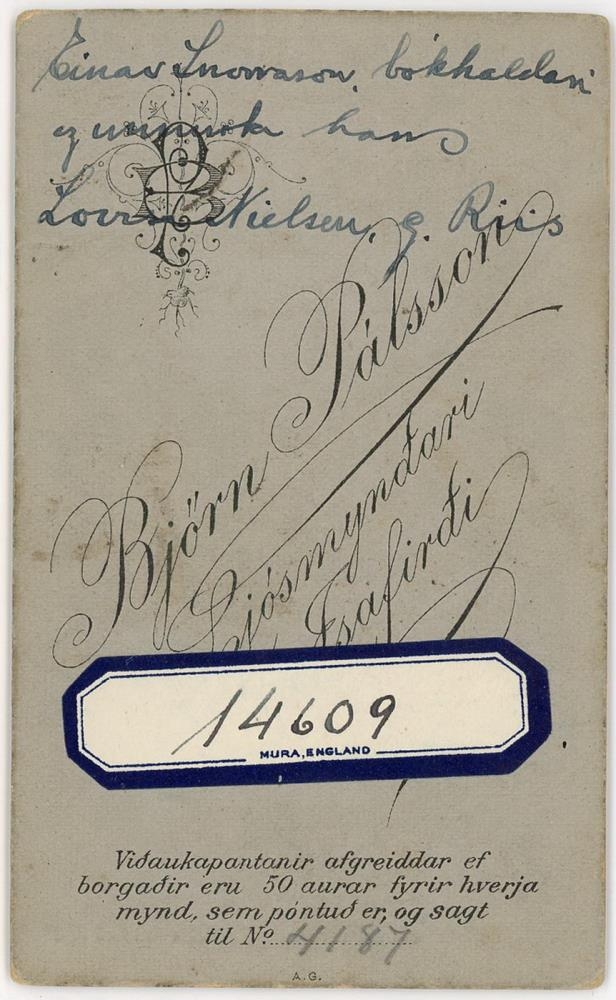 Einar Snorrason, bókhaldari
og unnusta hans
Lovísa Nielsen, g. Riis
Björn Pálsson
Ljósmyndari
Ísafirði
14609
MURA, ENGLAND
Viðaukapantanir afgreiddar ef
borgaðir eru 50 aurar fyrir hverja
mynd, sem póntuð er, og sagt
til Nº 4187
A.G.